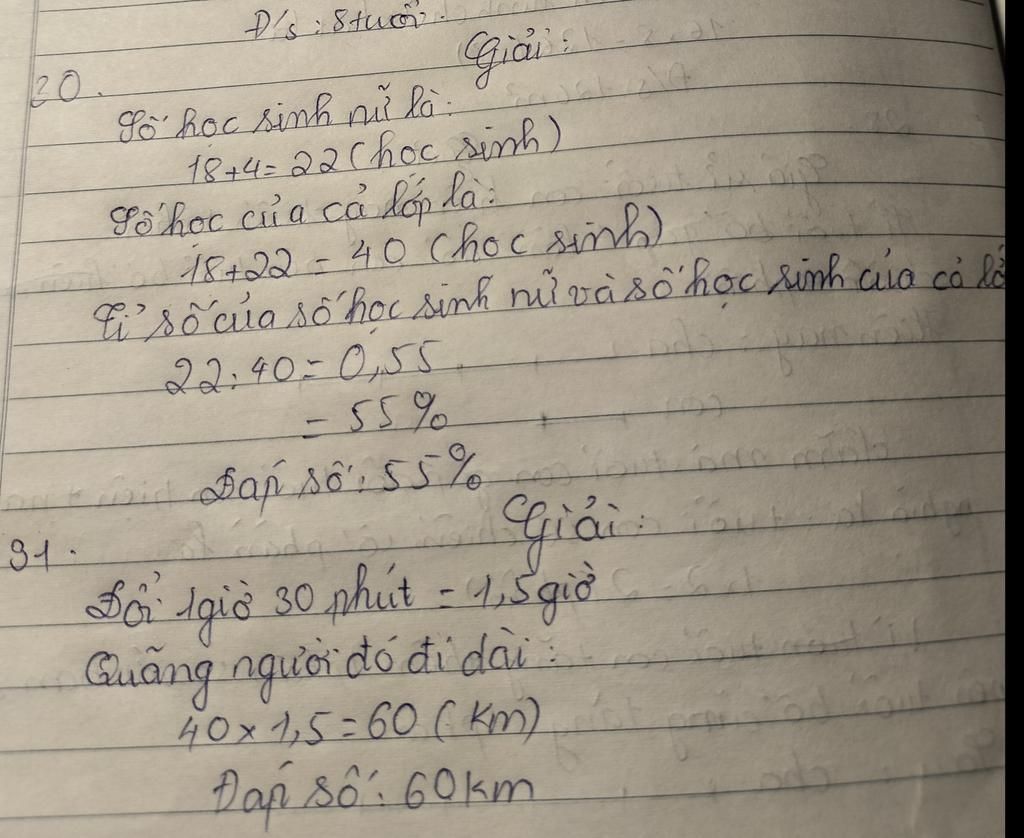 Đ/s: 8 tuổi.
Giải:
30.
Số học sinh nữ là:
18+4=22 (học sinh)
Số học của cả lớp là:
18+22 = 40 (học sinh)
Tỉ số của số học sinh nữ và số học sinh của cả lớ
22:40=0,55
= 55%
Đáp số: 55%
Giải:
31.
Đổi: 1giờ 30 phút = 1,5 giờ
Quãng người đó đi dài:
40 x 1,5 = 60 (km)
Đáp số: 60km